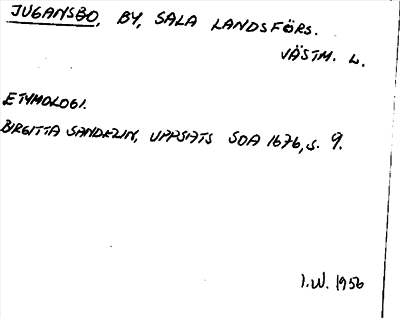 JUGANSBO, BY, SALA LANDSFÖRS.
VÄSTM. L.
ETYMOLOGI.
BIRGITTA SANDELIN, UPPSATS SOA 1676, s. 9.
I.W. 1956